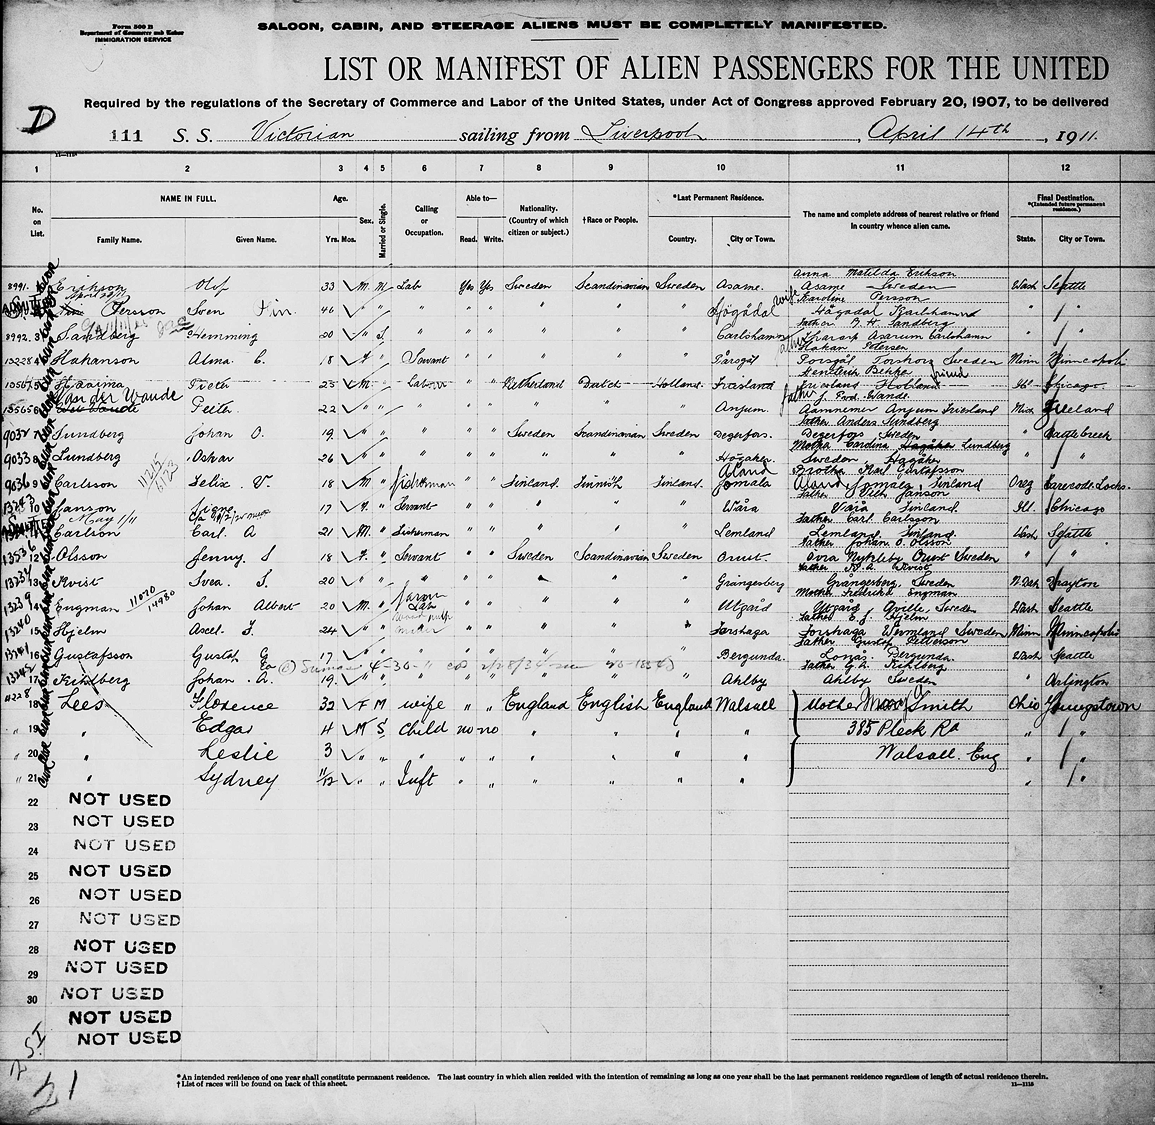 Form 500 B
Department of Commerce and Labor
IMMIGRATION SERVICE
SALOON, CABIN, AND STEERAGE ALIENS MUST BE COMPLETELY MANIFESTED.
LIST OR MANIFEST OF ALIEN PASSENGERS FOR THE UNITED
Required by the regulations of the Secretary of Commerce and Labor of the United States, under Act of Congress approved February 20, 1907, to be delivered
D
111 S. S. Victorian sailing from Liverpool, April 14th, 1911.
1 2 3 4 5 6 7 8 9 10 11 12
No. on List. NAME IN FULL. Family Name. Given Name. Age. Yrs. Mos. Sex. Married or Single. Calling or Occupation. Able to— Read. Write. Nationality. (Country of which citizen or subject.) †Race or People. *Last Permanent Residence. Country. City or Town. The name and complete address of nearest relative or friend in country whence alien came. Final Destination. *(Intended future permanent residence.) State. City or Town.
Anna Matilda Erikson
8991. Erikson Olof 33 M M Lab Yes Yes Sweden Scandinavian Sweden Asarne. Asarne Sweden Wash Seattle
ADMITTED Persson Sven Fin. 46 " " " " " " " Högådal wife Karoline Persson Högådal Karlshamn " "
Father B. H. Sandberg
8992. 3 Sandberg Hemming 20 " S " " " " " " Carlshamn Asarum Carlshamn " "
Hakan Petersen
13228 4 Hakanson Alma C. 18 F " Servant " " " " " Torskors Sweden Minn Minneapolis
Hendrik friend
5 Pieter 25 M " Labor " " Netherland Dutch Holland. Friesland Friesland Holland Ill Chicago.
Van der Woude father J. Wande.
13565 6 Peiter. 22 " " " " " " " " Anjum. Anjum Friesland Mich Vreeland
Father Anders Lundberg
9032 7 Lundberg Johan O. 19. " " " " " Sweden Scandinavian Sweden Degerfors. Degerfors Sweden " Battlecreek
Mother Carolina Lundberg
9033 8 Lundberg Oskar 26 " " " " " " " " Högåker Sweden Hagåker " "
Åland Brother Karl Gustafsson
9036 9 Carlsson Felix V. 18 M " Fisherman " " Finland. Finnish Finland. Jomala Åland, Jomala, Finland Oreg Cascade Locks.
Father Vilh Janson
10 Janson Signe. 17 F. " Servant " " " " " Wåra Våra Finland. Ill. Chicago
May 1/11 Father Carl Carlsson
ADMITTED Carlson Carl. A 21 M. " Fisherman " " " " " Lemland Lemland Finland. Wash Seattle
Father Johan O. Olsson
13536 12 Olsson Jenny. S 18 F. " Servant " " Sweden Scandinavian Sweden Orust. Orust Sweden " "
Father K. A. Kvist
13 Kvist Svea. S. 20 " " " " " " " " Grängesberg Grängesberg, Sweden N. Dak Drayton
Mother Fredrika Engman
13239 14 Engman 11070 14980 Johan Albert 20 M. " Farm Lab " " " " " Utgård Utgård Sweden Wash Seattle
Father C. J. Hjelm
13240 15 Hjelm Axel. F. 24 " " " " " " " Forshaga Forshaga Wermland Sweden Minn Minneapolis
Father Gustaf Petterson
13241 16 Gustafsson Gustaf G 17 " " " " " " " Bergunda. Bergunda. Wash Seattle
13242 17 Johan. A. 19. " " " " " " " Ahlby Ahlby Sweden " Arlington
18 Lees Florence 32 F M wife " " England English England Walsall Mother Mary Smith Ohio Youngstown
" 19 " Edgar 4 M S Child no no " " " " 385 Pleck Rd " "
" 20 " Leslie 3 " " " " " " " " " Walsall. Eng " "
" 21 " Sydney 11/12 " " Inft " " " " " " " "
22 NOT USED
23 NOT USED
24 NOT USED
25 NOT USED
26 NOT USED
27 NOT USED
28 NOT USED
29 NOT USED
30 NOT USED
NOT USED
NOT USED
21
*An intended residence of one year shall constitute permanent residence. The last country in which alien resided with the intention of remaining as long as one year shall be the last permanent residence regardless of length of actual residence therein.
†List of races will be found on back of this sheet.
11—1115